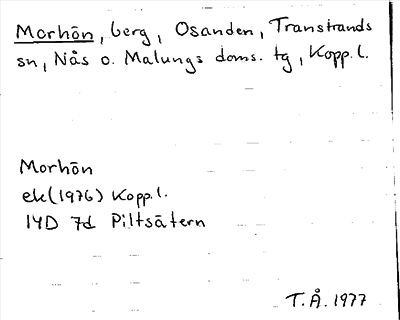 Morhön, berg, Osanden, Transtrands
sn, Nås o. Malungs doms. tg, Kopp. l.
Morhön
ek (1976) Kopp. l.
14D 7d Piltsätern
T.Å. 1977